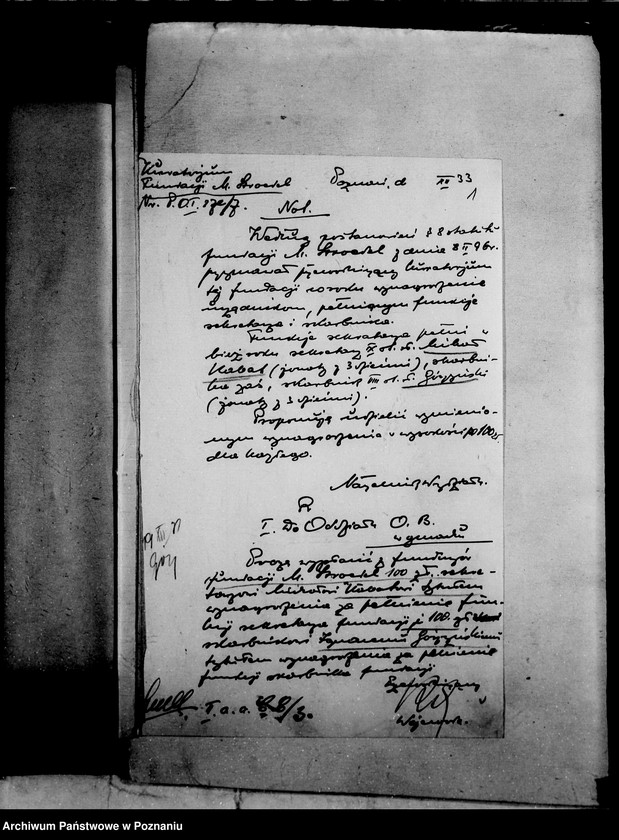 Kuratorjum
Fundacji M. Stroedel
Poznań, d XII 33
1
Not.
Według postanowień § 8 statutu
fundacji M. Stroedel z dnia 8 II 96 r.
przyznawał przewodniczący kuratorjum
tej fundacji co roku wynagrodzenie
urzędnikom, pełniącym funkcje
sekretarza i skarbnika.
Funkcje sekretarza pełni w
bież. roku sekretarz
Kabat (żonaty z 3 dziećmi), skarbni-
ka zaś, skarbnik VIII st. sł. Górzyński
(żonaty z 3 dziećmi).
Proponuję udzielić wymienio-
nym wynagrodzenia w wysokości po 100 zł
dla każdego.
Naczelnik Wydziału.
I. Do Oddziału O. B.
w gmachu
Proszę wypłacić z funduszów
fundacji M. Stroedel 100 zł. sekre-
tarzowi Kabatowi tytułem
wynagrodzenia za pełnienie funk-
cji sekretarza fundacji i 100 zł
skarbnikowi Ignacemu Górzyńskiemu
tytułem wynagrodzenia za pełnienie
funkcji skarbnika fundacji
II. a. a.
Wojewoda.
19 XII
Archiwum Państwowe w Poznaniu